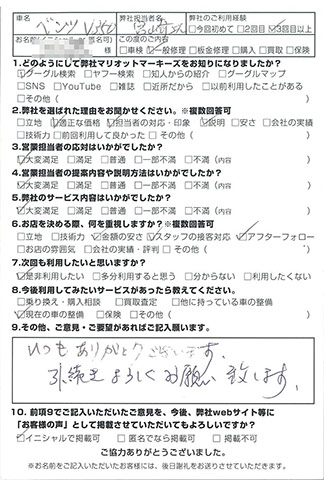 車名 ベンツ 弊社担当者名 弊社のご利用経験
□今回初めて □2回目 ☑3回目以上
お名前(イニシャル or 匿名可) 今回のご用の内容
□車検 ☑一般修理 □板金修理 □購入 □買取 □保険
1.どのようにして弊社マリオットマーキーズをお知りになりましたか?
☑グーグル検索 □ヤフー検索 □知人からの紹介 □グーグルマップ
□SNS □YouTube □雑誌 □近所だから □以前利用したことがある
□その他( )
2.弊社を選ばれた理由をお聞かせください。※複数回答可
□立地 ☑適正な価格 ☑担当者の対応・印象 ☑説明 □安さ □会社の実績
□技術力 □前回利用して良かった □その他( )
3.営業担当者の応対はいかがでしたか?
☑大変満足 □満足 □普通 □一部不満 □不満(内容 )
4.営業担当者の提案内容や説明方法はいかがでしたか?
☑大変満足 □満足 □普通 □一部不満 □不満(内容 )
5.弊社のサービス内容はいかがでしたか?
☑大変満足 □満足 □普通 □一部不満 □不満(内容 )
6.お店を決める際、何を重視しますか?※複数回答可
□立地 □技術力 ☑金額の安さ ☑スタッフの接客対応 ☑アフターフォロー
□お店の雰囲気 □会社の実績・評判 □その他( )
7.次回も利用したいと思いますか?
☑是非利用したい □多分利用すると思う □分からない □利用したくない
8.今後利用してみたいサービスがあったら教えてください。
□乗り換え・購入相談 □買取査定 □他に持っている車の整備
☑現在の車の整備 □保険 □その他( )
9.その他、ご意見・ご要望があればご記入願います。
いつもありがとうございます。
引続きよろしくお願い致します。
10.前項9でご記入いただいたご意見を、今後、弊社webサイト等に
「お客様の声」として掲載させていただいてもよろしいですか?
☑イニシャルで掲載可 □匿名でなら掲載可 □掲載不可
ご協力ありがとうございました。
※お名前をご記入いただいたお客様には、後日謝礼をお送りさせていただきます。